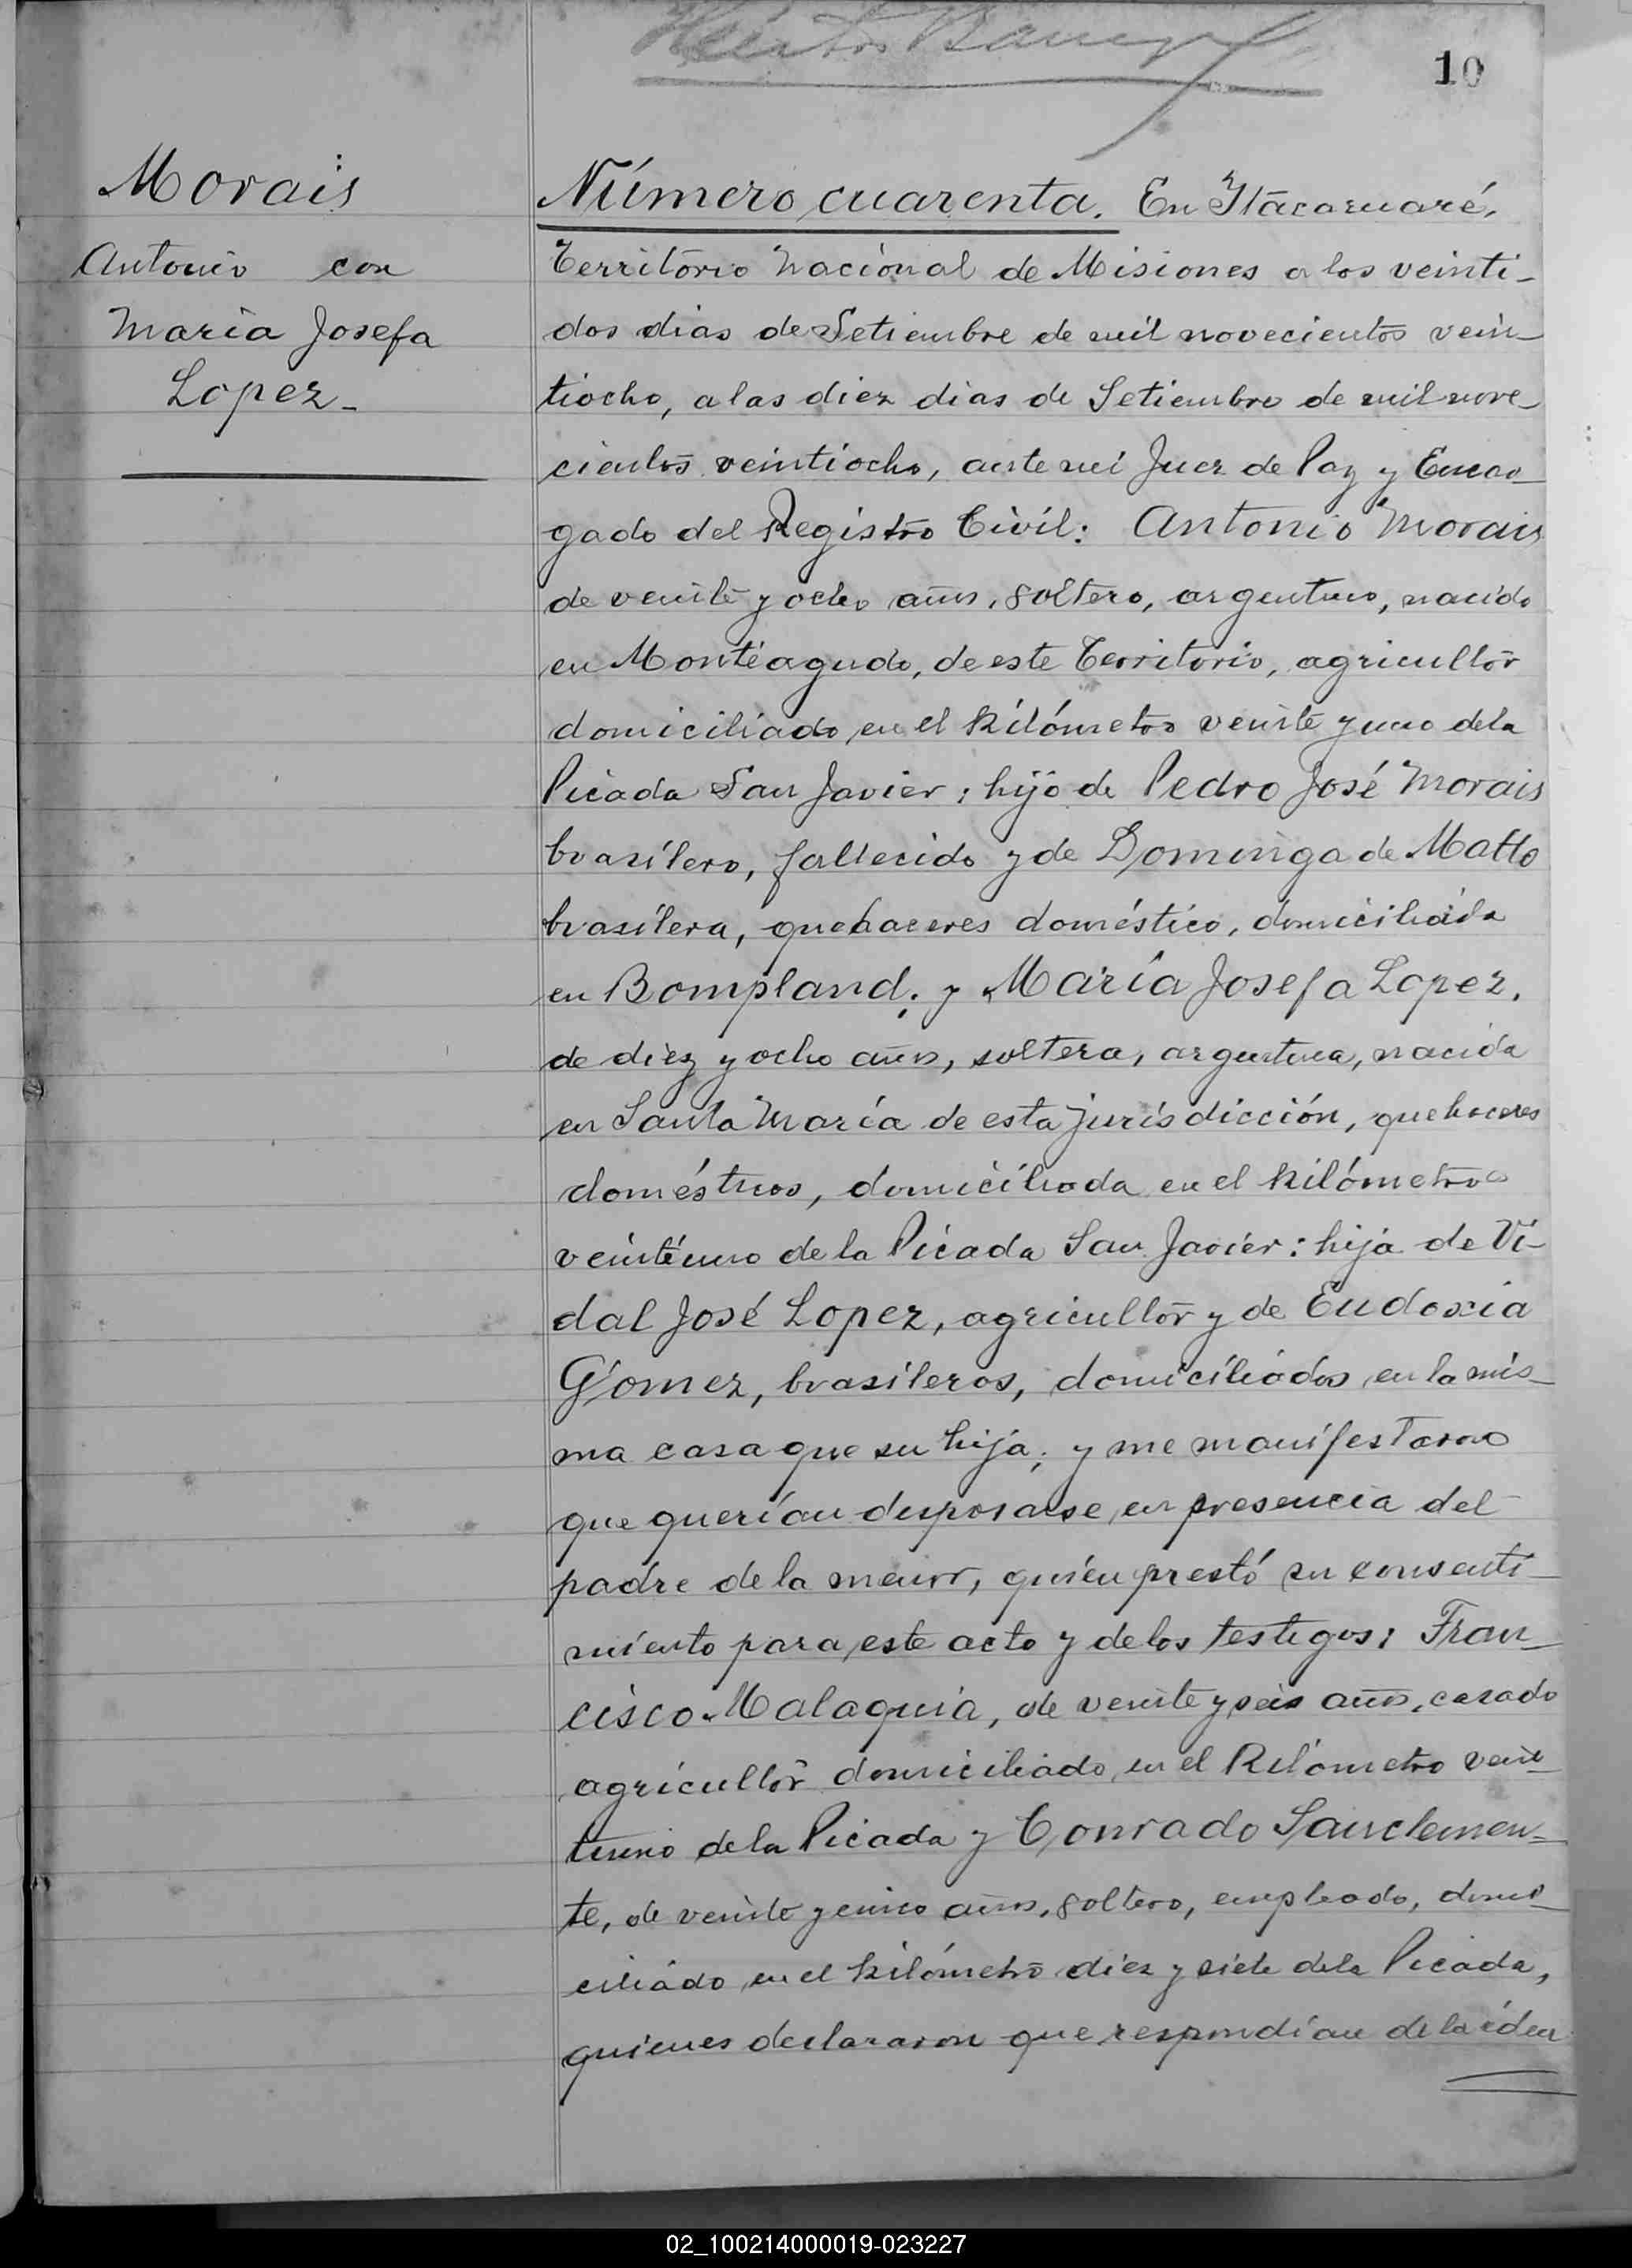 10
Morais
Antonio con
Maria Josefa
Lopez-
Número cuarenta. En Itacaruaré,
Territorio Nacional de Misiones a los veinti-
dos dias de Setiembre de mil novecientos vein-
tiocho, a las diez dias de Setiembre de mil nove-
cientos veintiocho, ante mi Juez de Paz y Encar-
gado del Registro Civil: Antonio Morais
de veinte y ocho años, soltero, argentino, nacido
en Monteagudo, de este Territorio, agricultor
domiciliado en el kilómetro veinte y uno de la
Picada San Javier; hijo de Pedro José Morais
brasilero, fallecido y de Dominga de Matto
brasilera, quehaceres doméstico, domiciliada
en Bompland; y María Josefa Lopez,
de diez y ocho años, soltera, argentina, nacida
en Santa María de esta jurisdicción, quehaceres
domésticos, domiciliada en el kilómetro
veintiuno de la Picada San Javier: hija de Vi-
dal José Lopez, agricultor y de Eudoxia
Gómez, brasileros, domiciliados en la mis-
ma casa que su hija; y me manifestaron
que querían desposarse en presencia del
padre de la menor, quién prestó su consenti-
miento para este acto y de los testigos: Fran-
cisco Malaquia, de veinte y seis años, casado
agricultor domiciliado en el Kilómetro vein-
tiuno de la Picada y Conrado Sanclemen-
te, de veinte y cinco años, soltero, empleado, domi-
ciliado en el kilómetro diez y siete dela Picada,
quienes declararon que respondían de la iden
02_100214000019-023227